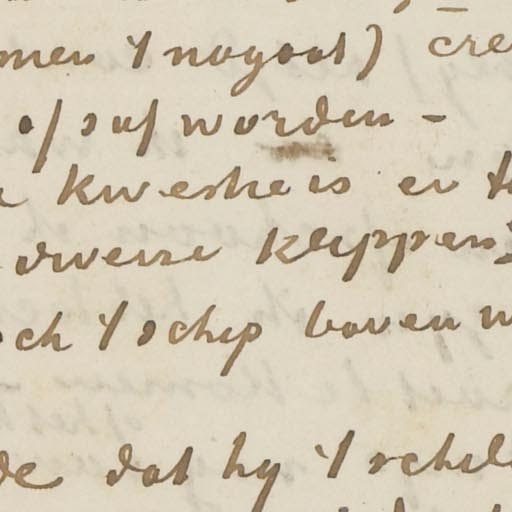 men 't nogoal) cre
of suf worden -
kwestie is er
diverse klippen
och 't schip boven w
de dat hy 't schil